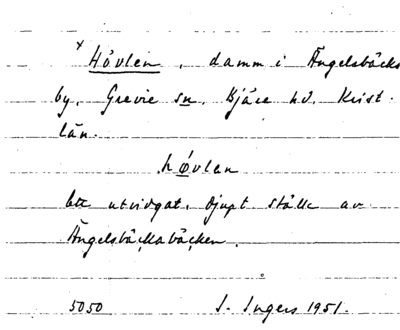 x Hövlen, damm i Ängelsbäcks
by, Grevie sn. Bjäre hd. Krist.
län.
hövlan
utvidgat, djupt ställe av
Ängelsbäcksbäcken.
5050 I. Ingers 1951.